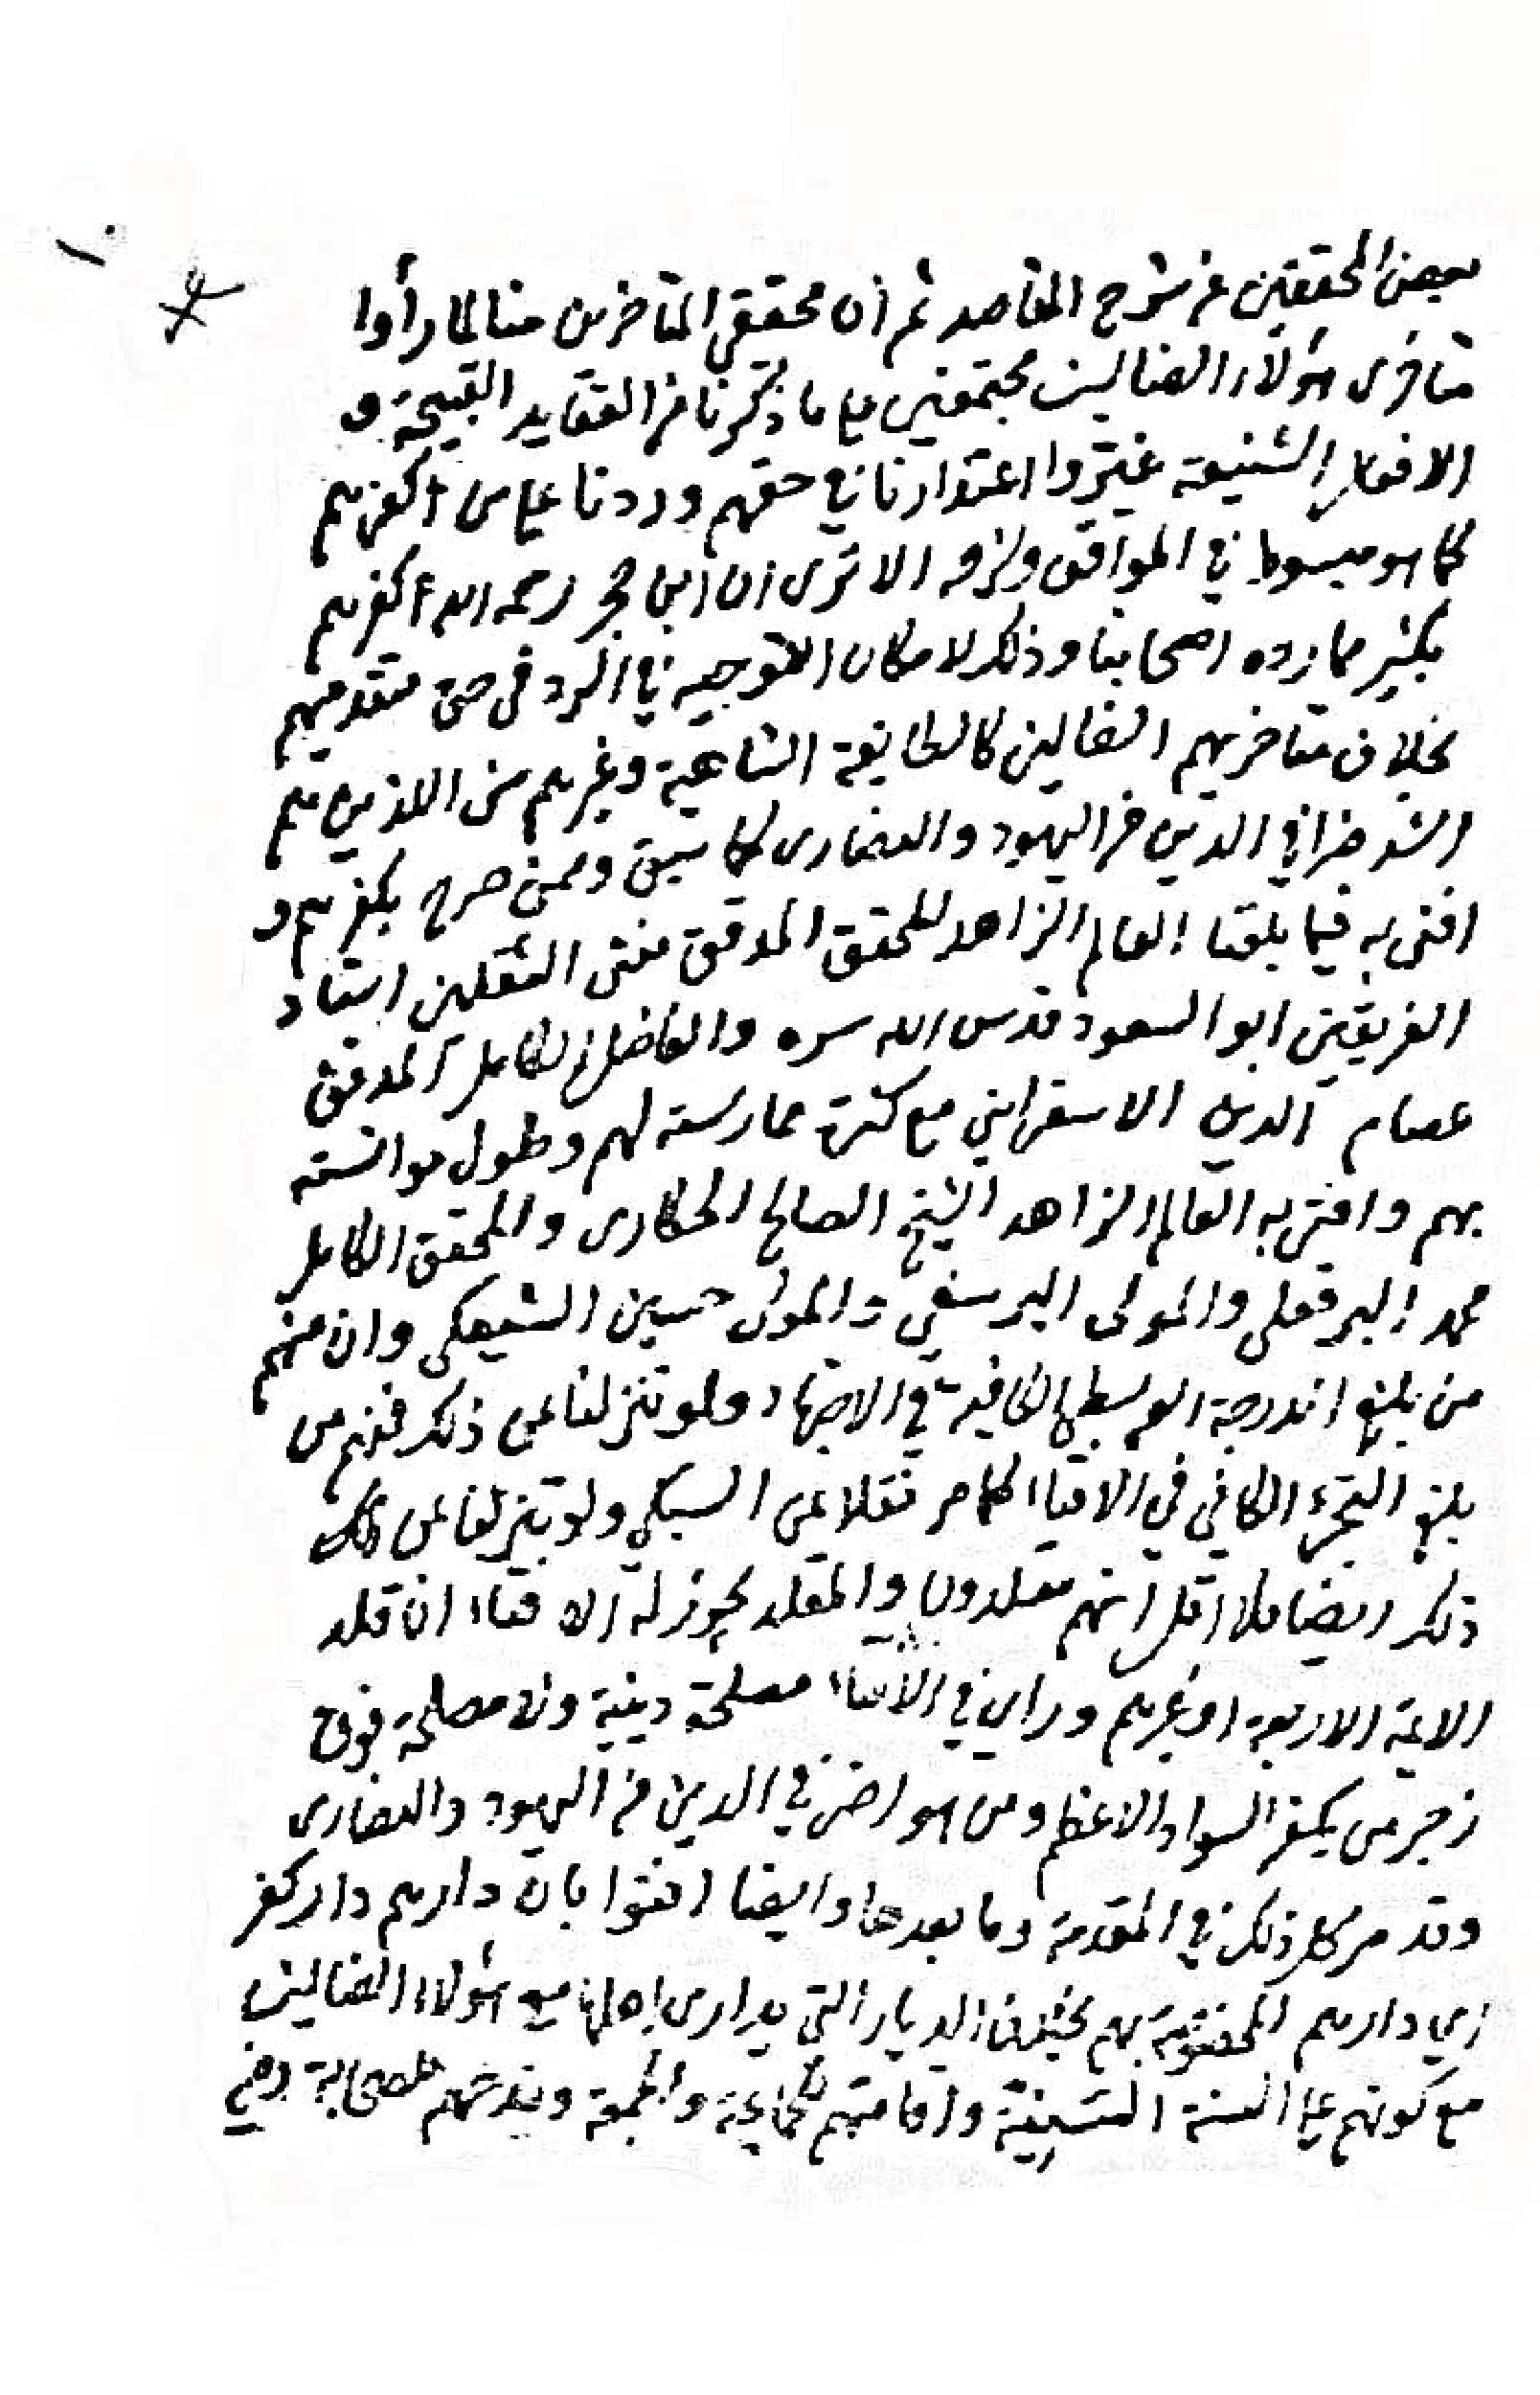 بعض المحققين عن شرح المقاصد ثم ان محققي المتأخرين منا لما رأوا
متأخرى هؤلاء الضالين مجتمعين على ما ذكرنا من العقايد القبيحة و
الافعال الشنيعة غيروا اعتقادنا في حقهم ورددنا على من اكفرهم
كما هو مبسوط في المواقف وغيره الا ترى ان ابن حجر رحمه الله اكفرهم
بكثير مما رده اصحابنا وذلك لامكان التوجيه في الرد في حق متقدميهم
بخلاف متاخريهم الضالين كالطايفة الشاهية وغيرهم من الذين هم
اشد ضرا في الدين من اليهود والنصارى كما سبق وممن صرح بكفرهم و
افتى به فيما بلغنا العالم الزاهد المحقق المدقق مفتى الثقلين استاد
الفريقين ابو السعود قدس الله سره والفاضل الكامل المدقق
عصام الدين الاسفرايني مع كثرة ممارسته لهم وطول موانسته
بهم وافتى به العالم الزاهد الشيخ الصالح الحكارى والمحقق الكامل
محمد البرقلعى والمولى والمولى حسين الشيعكى وان منهم
من بلغ الدرجة الوسطى الكافية في الاجتهاد ولو تنزلنا عن ذلك فمنهم من
بلغ التجزء الكافي في الافتاء كما مر نقلا عن السبكي ولو تنزلنا عن
ذلك ايضا فلا اقل انهم مقلدون والمقلد يجوز له الافتاء ان قلد
الايمة الاربعة او غيرهم وراى في الافتاء مصلحة دينية ولا مصلحة فوق
زجر من يكفر السواد الاعظم ومن هو اضر في الدين من اليهود والنصارى
وقد مر كل ذلك في المقدمة وما بعدها وايضا افتوا بان دارهم دار كفر
اي دارهم المختصة بهم بخلاف الديار التى يدارى اهلها مع هؤلاء الضالين
مع كونهم على السنة السنية واقامتهم للجماعة والجمعة للصحابة رضي